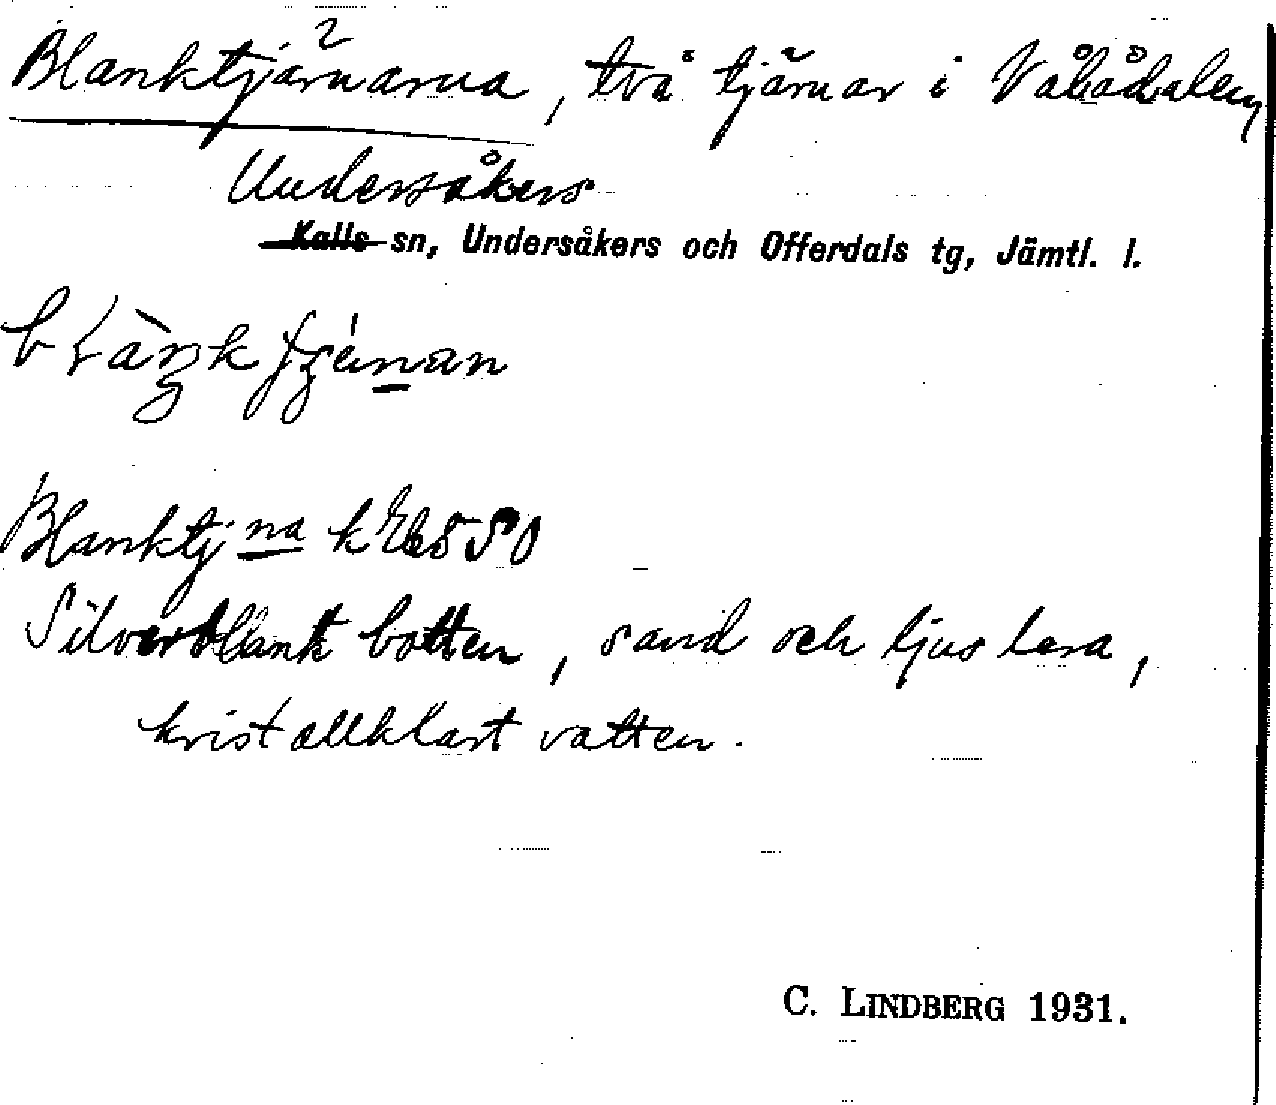 Blanktjärnarna², två tjärnar i Vålådalen,
Undersåkers
Kalls sn, Undersåkers och Offerdals tg, Jämtl. l.
Blanktj na k
Silverblank botten, sand och ljus lera,
kristallklart vatten.
C. LINDBERG 1931.